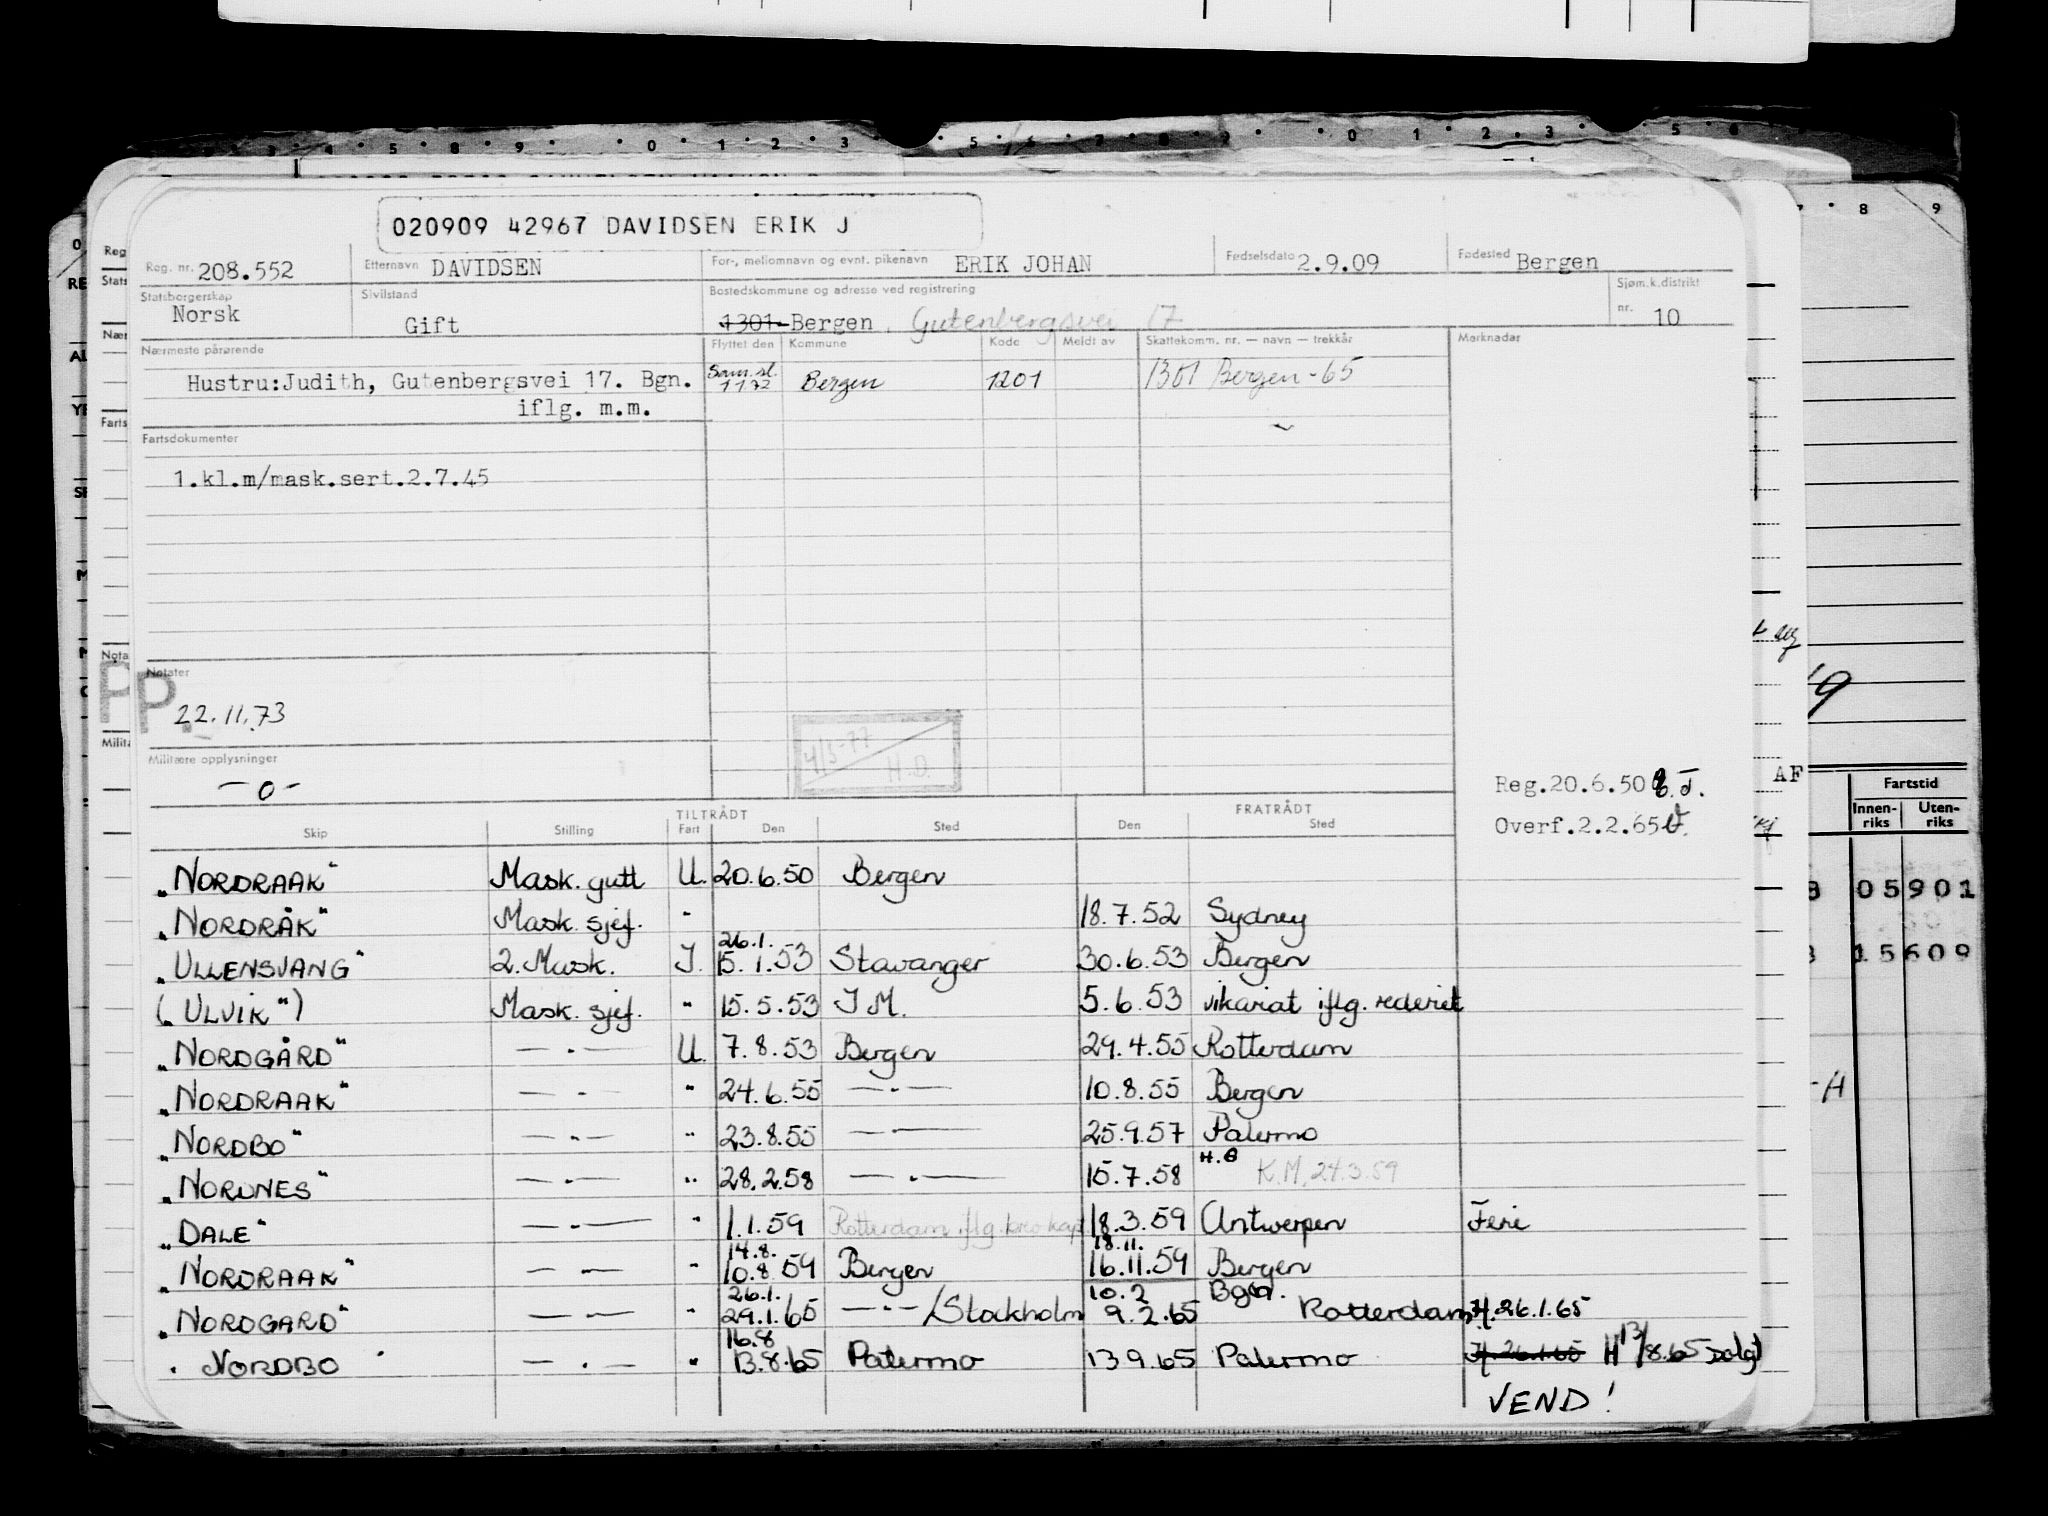 020909 42967 DAVIDSEN ERIK J
Reg. nr. 208.552 Etternavn DAVIDSEN For-, mellomnavn og evnt. pikenavn ERIK JOHAN Fødselsdato 2.9.09 Fødested Bergen
Statsborgerskap Norsk Sivilstand Gift Bostedskommune og adresse ved registrering 1301 Bergen. Gutenbergsvei 17 Sjøm.k.distrikt nr. 10
Nærmeste pårørende Flyttet den Kommune Kode Meldt av Skattekomm. nr. — navn — trekkår Merknader
Hustru:Judith, Gutenbergsvei 17. Bgn. Bergen 1201 1301 Bergen-65
iflg. m.m.
Fartsdokumenter
1.kl.m/mask.sert.2.7.45
Notater
PP. 22.11.73
4/3-77
H.D.
Militære opplysninger
-0-
Reg.20.6.50
Overf.2.2.65
TILTRÅDT FRATRÅDT
Skip Stilling Fart Den Sted Den Sted
"NORDRAAK" Mask. gutt U. 20.6.50 Bergen
"NORDRÅK" Mask. sjef. " 18.7.52 Sydney
26.1.
"ULLENSVANG" 2. Mask. I. 15.1.53 Stavanger 30.6.53 Bergen
("ULVIK") Mask. sjef. " 15.5.53 I M. 5.6.53 vikariat iflg. rederiet
"NORDGÅRD" —.— U. 7.8.53 Bergen 29.4.55 Rotterdam
"NORDRAAK" —.— " 24.6.55 —.— 10.8.55 Bergen
"NORDBO" —.— " 23.8.55 —.— 25.9.57 Palermo
"NORDNES" —.— " 28.2.58 —.— 15.7.58 H.G K.M. 24.3.59
"DALE" —.— " 1.1.59 Rotterdam iflg. 18.3.59 Antwerpen Ferie
14.8. 18.11.
"NORDRAAK" —.— " 10.8.59 Bergen 16.11.59 Bergen
26.1. 10.2 Bgn.
"NORDGARD" —.— " 29.1.65 —.—/Stockholm 9.2.65 Rotterdam H. 26.1.65
16.8
"NORDBO" —.— " 13.8.65 Palermo 13.9.65 Palermo H. 26.1.65 H 13/8.65 Solgt
VEND!
Fartstid
Innen-riks Uten-riks
05901
15609